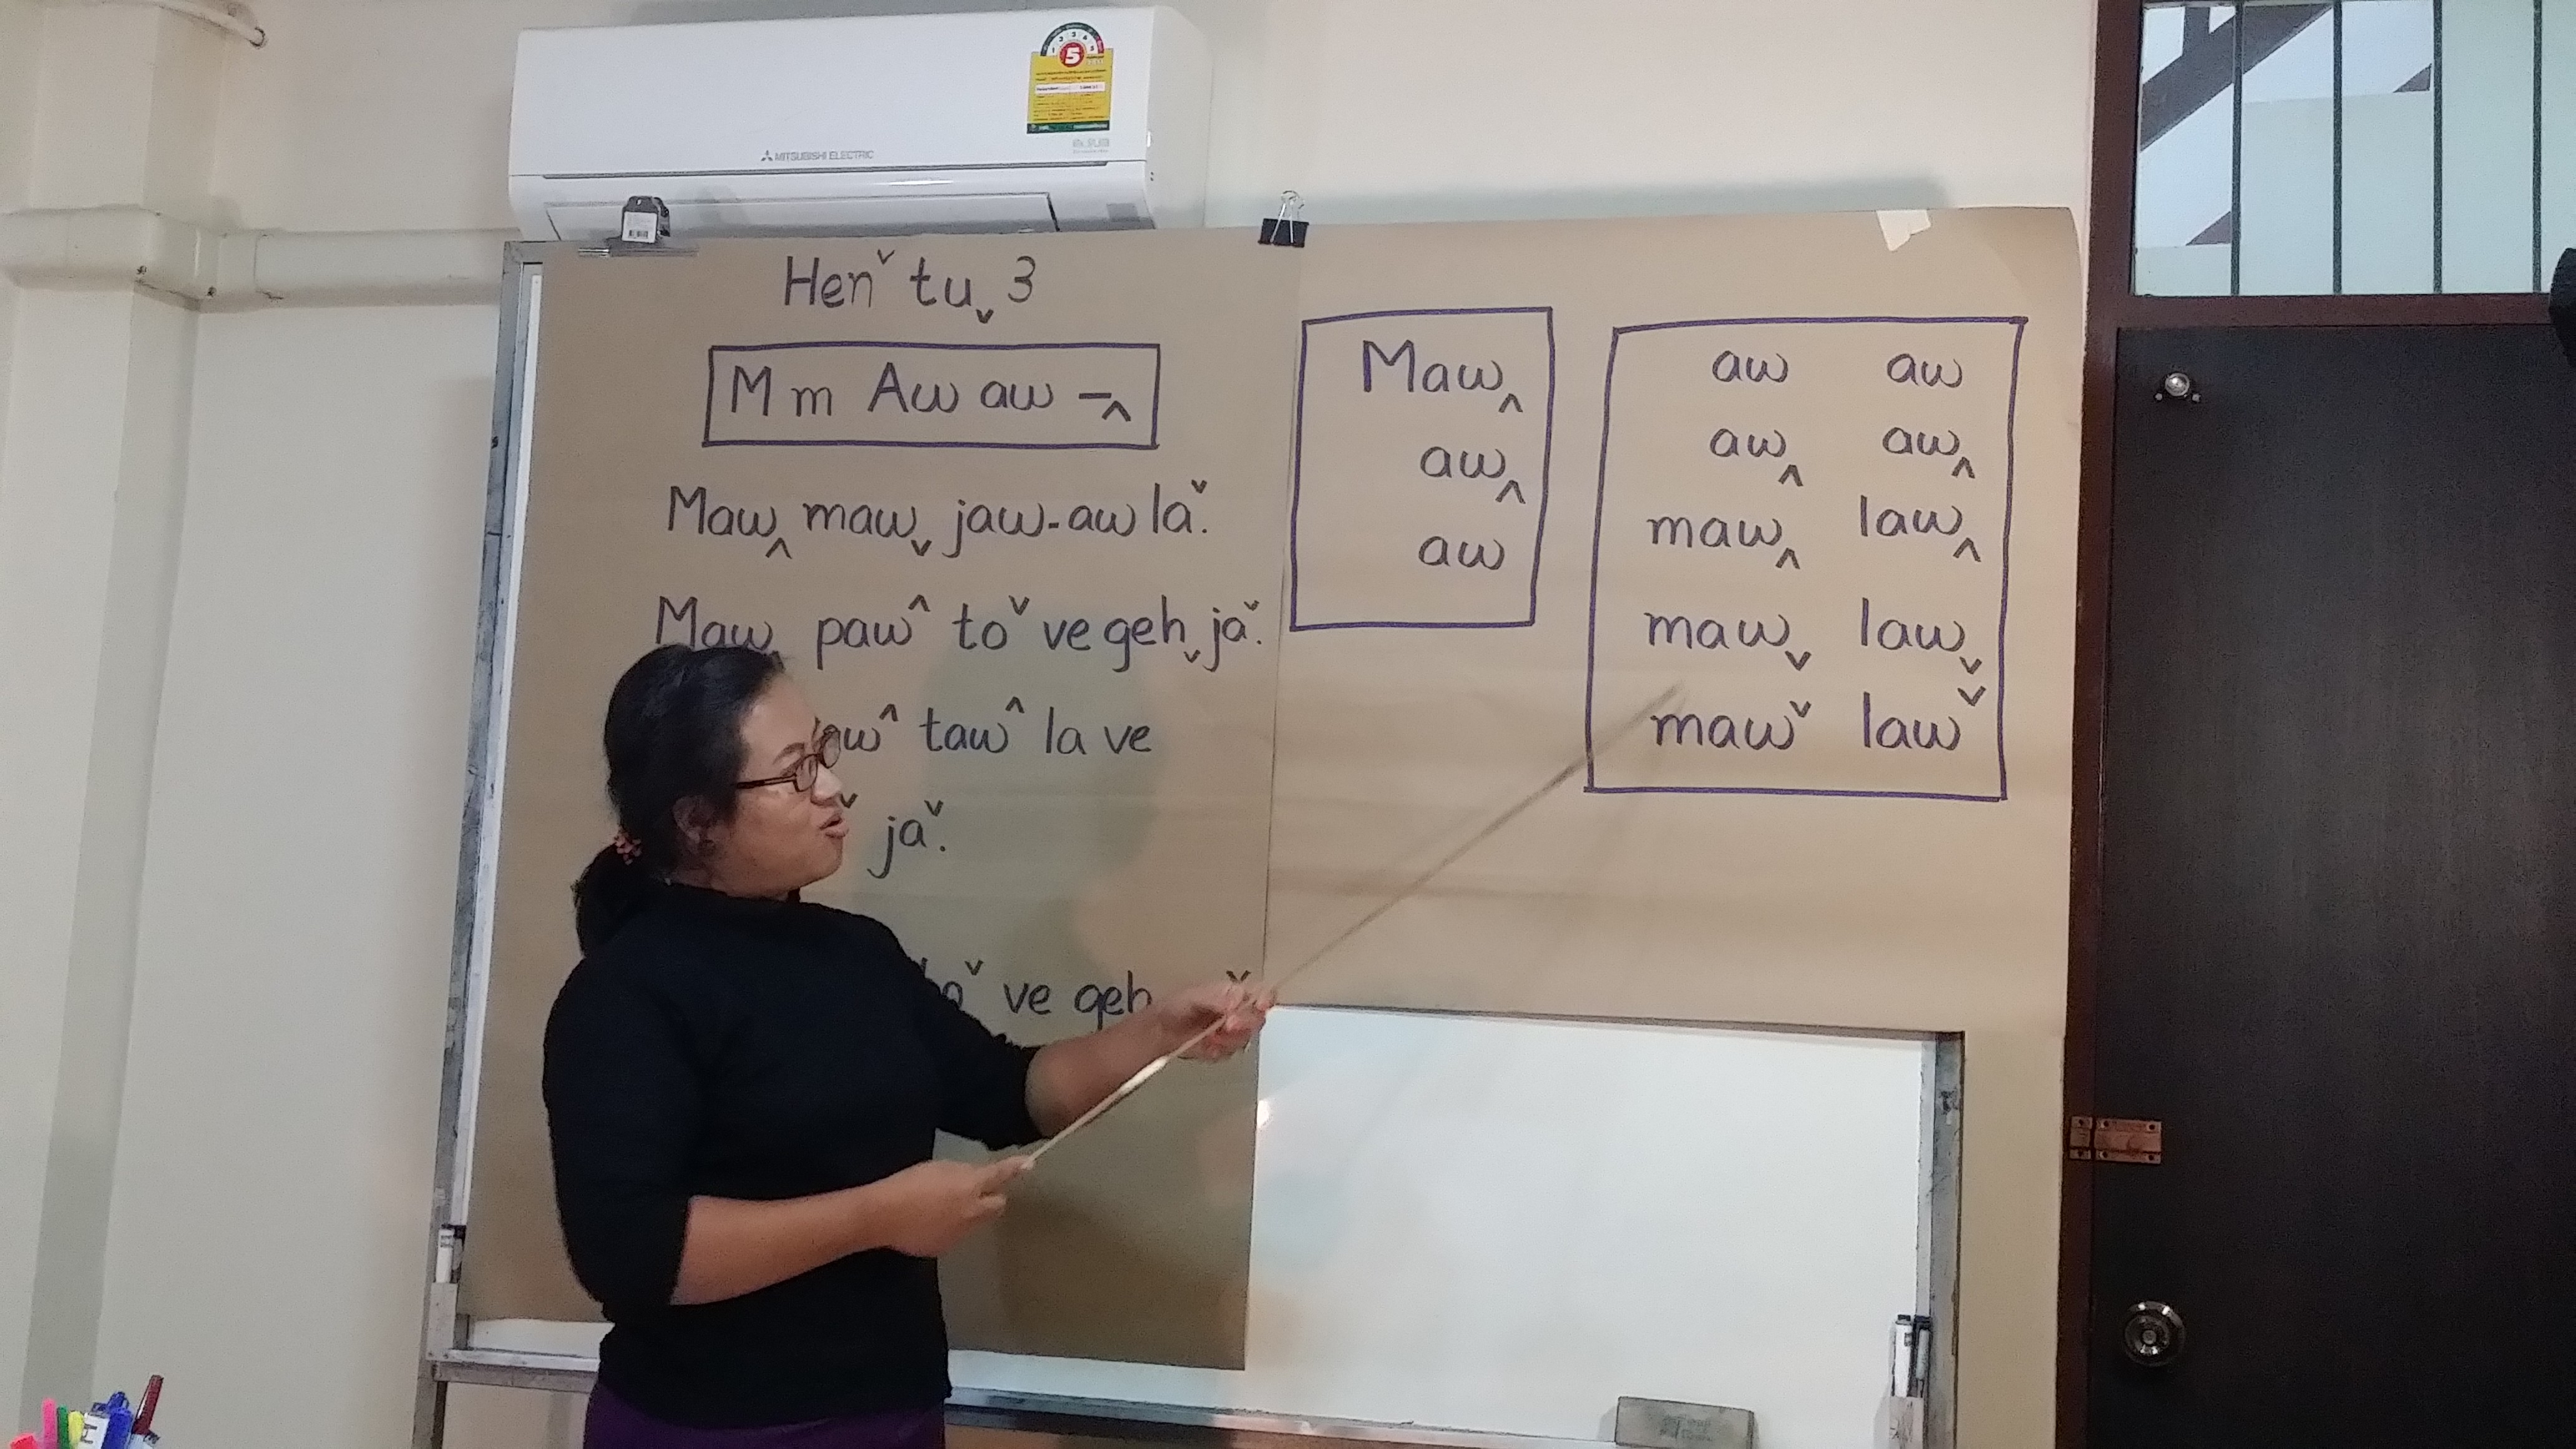 MITSUBISHI ELECTRIC
5
Henˇ tuˬ 3
M m Aw aw –‸
Maw‸ mawˬ jaw-aw laˇ.
Maw‸ pawˆ toˇ ve gehˬ jaˇ.
tawˆ la ve
jaˇ.
ve geh
Maw‸
aw‸
aw
aw aw
aw‸ aw‸
maw‸ law‸
mawˬ lawˬ
mawˇ lawˇ